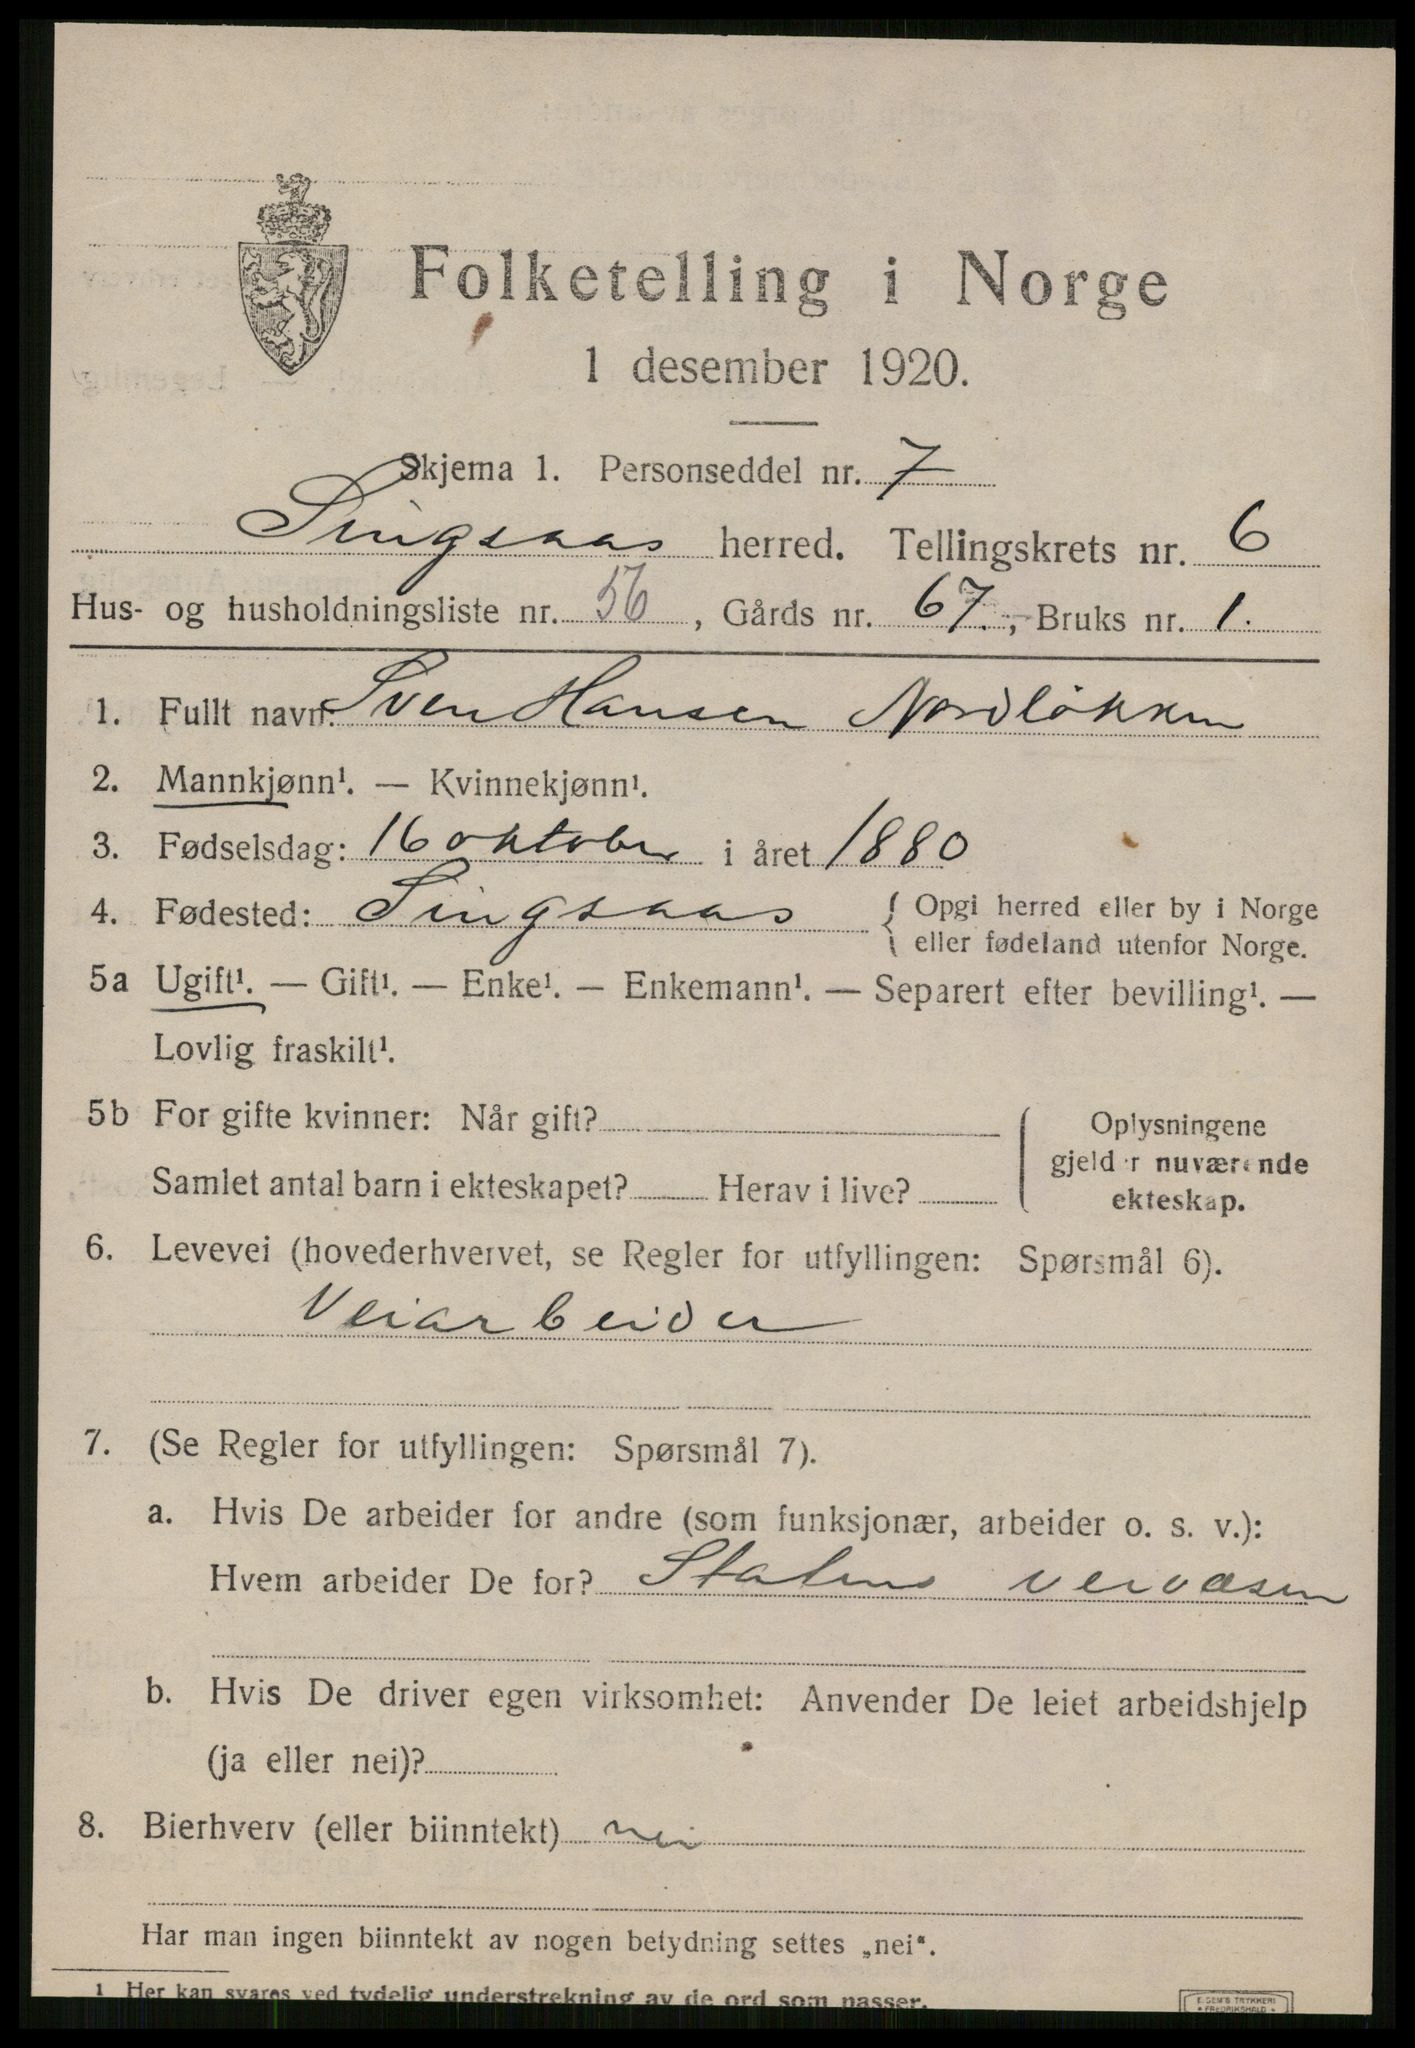 Folketelling i Norge
1 desember 1920.
Skjema 1. Personseddel nr. 7
Singsaas herred. Tellingskrets nr. 6
Hus- og husholdningsliste nr. 56, Gårds nr. 67., Bruks nr. 1.
1. Fullt navn: Sven Hansen Nordløkken
2. Mannkjønn¹. — Kvinnekjønn¹.
3. Fødselsdag: 16 oktober i året 1880
4. Fødested: Singsaas { Opgi herred eller by i Norge
eller fødeland utenfor Norge.
5a Ugift¹. — Gift¹. — Enke¹. — Enkemann¹. — Separert efter bevilling¹. —
Lovlig fraskilt¹.
5b For gifte kvinner: Når gift?
Samlet antal barn i ekteskapet? Herav i live?
Oplysningene
gjelder nuværende
ekteskap.
6. Levevei (hovederhvervet, se Regler for utfyllingen: Spørsmål 6).
Veiarbeider
7. (Se Regler for utfyllingen: Spørsmål 7).
a. Hvis De arbeider for andre (som funksjonær, arbeider o. s. v.):
Hvem arbeider De for? Statens veivæsen
b. Hvis De driver egen virksomhet: Anvender De leiet arbeidshjelp
(ja eller nei)?
8. Bierhverv (eller biinntekt) nei
Har man ingen biinntekt av nogen betydning settes „nei“.
1 Her kan svares ved tydelig understrekning av de ord som passer.
E. SEM'S TRYKKERI
• FREDRIKSHALD •